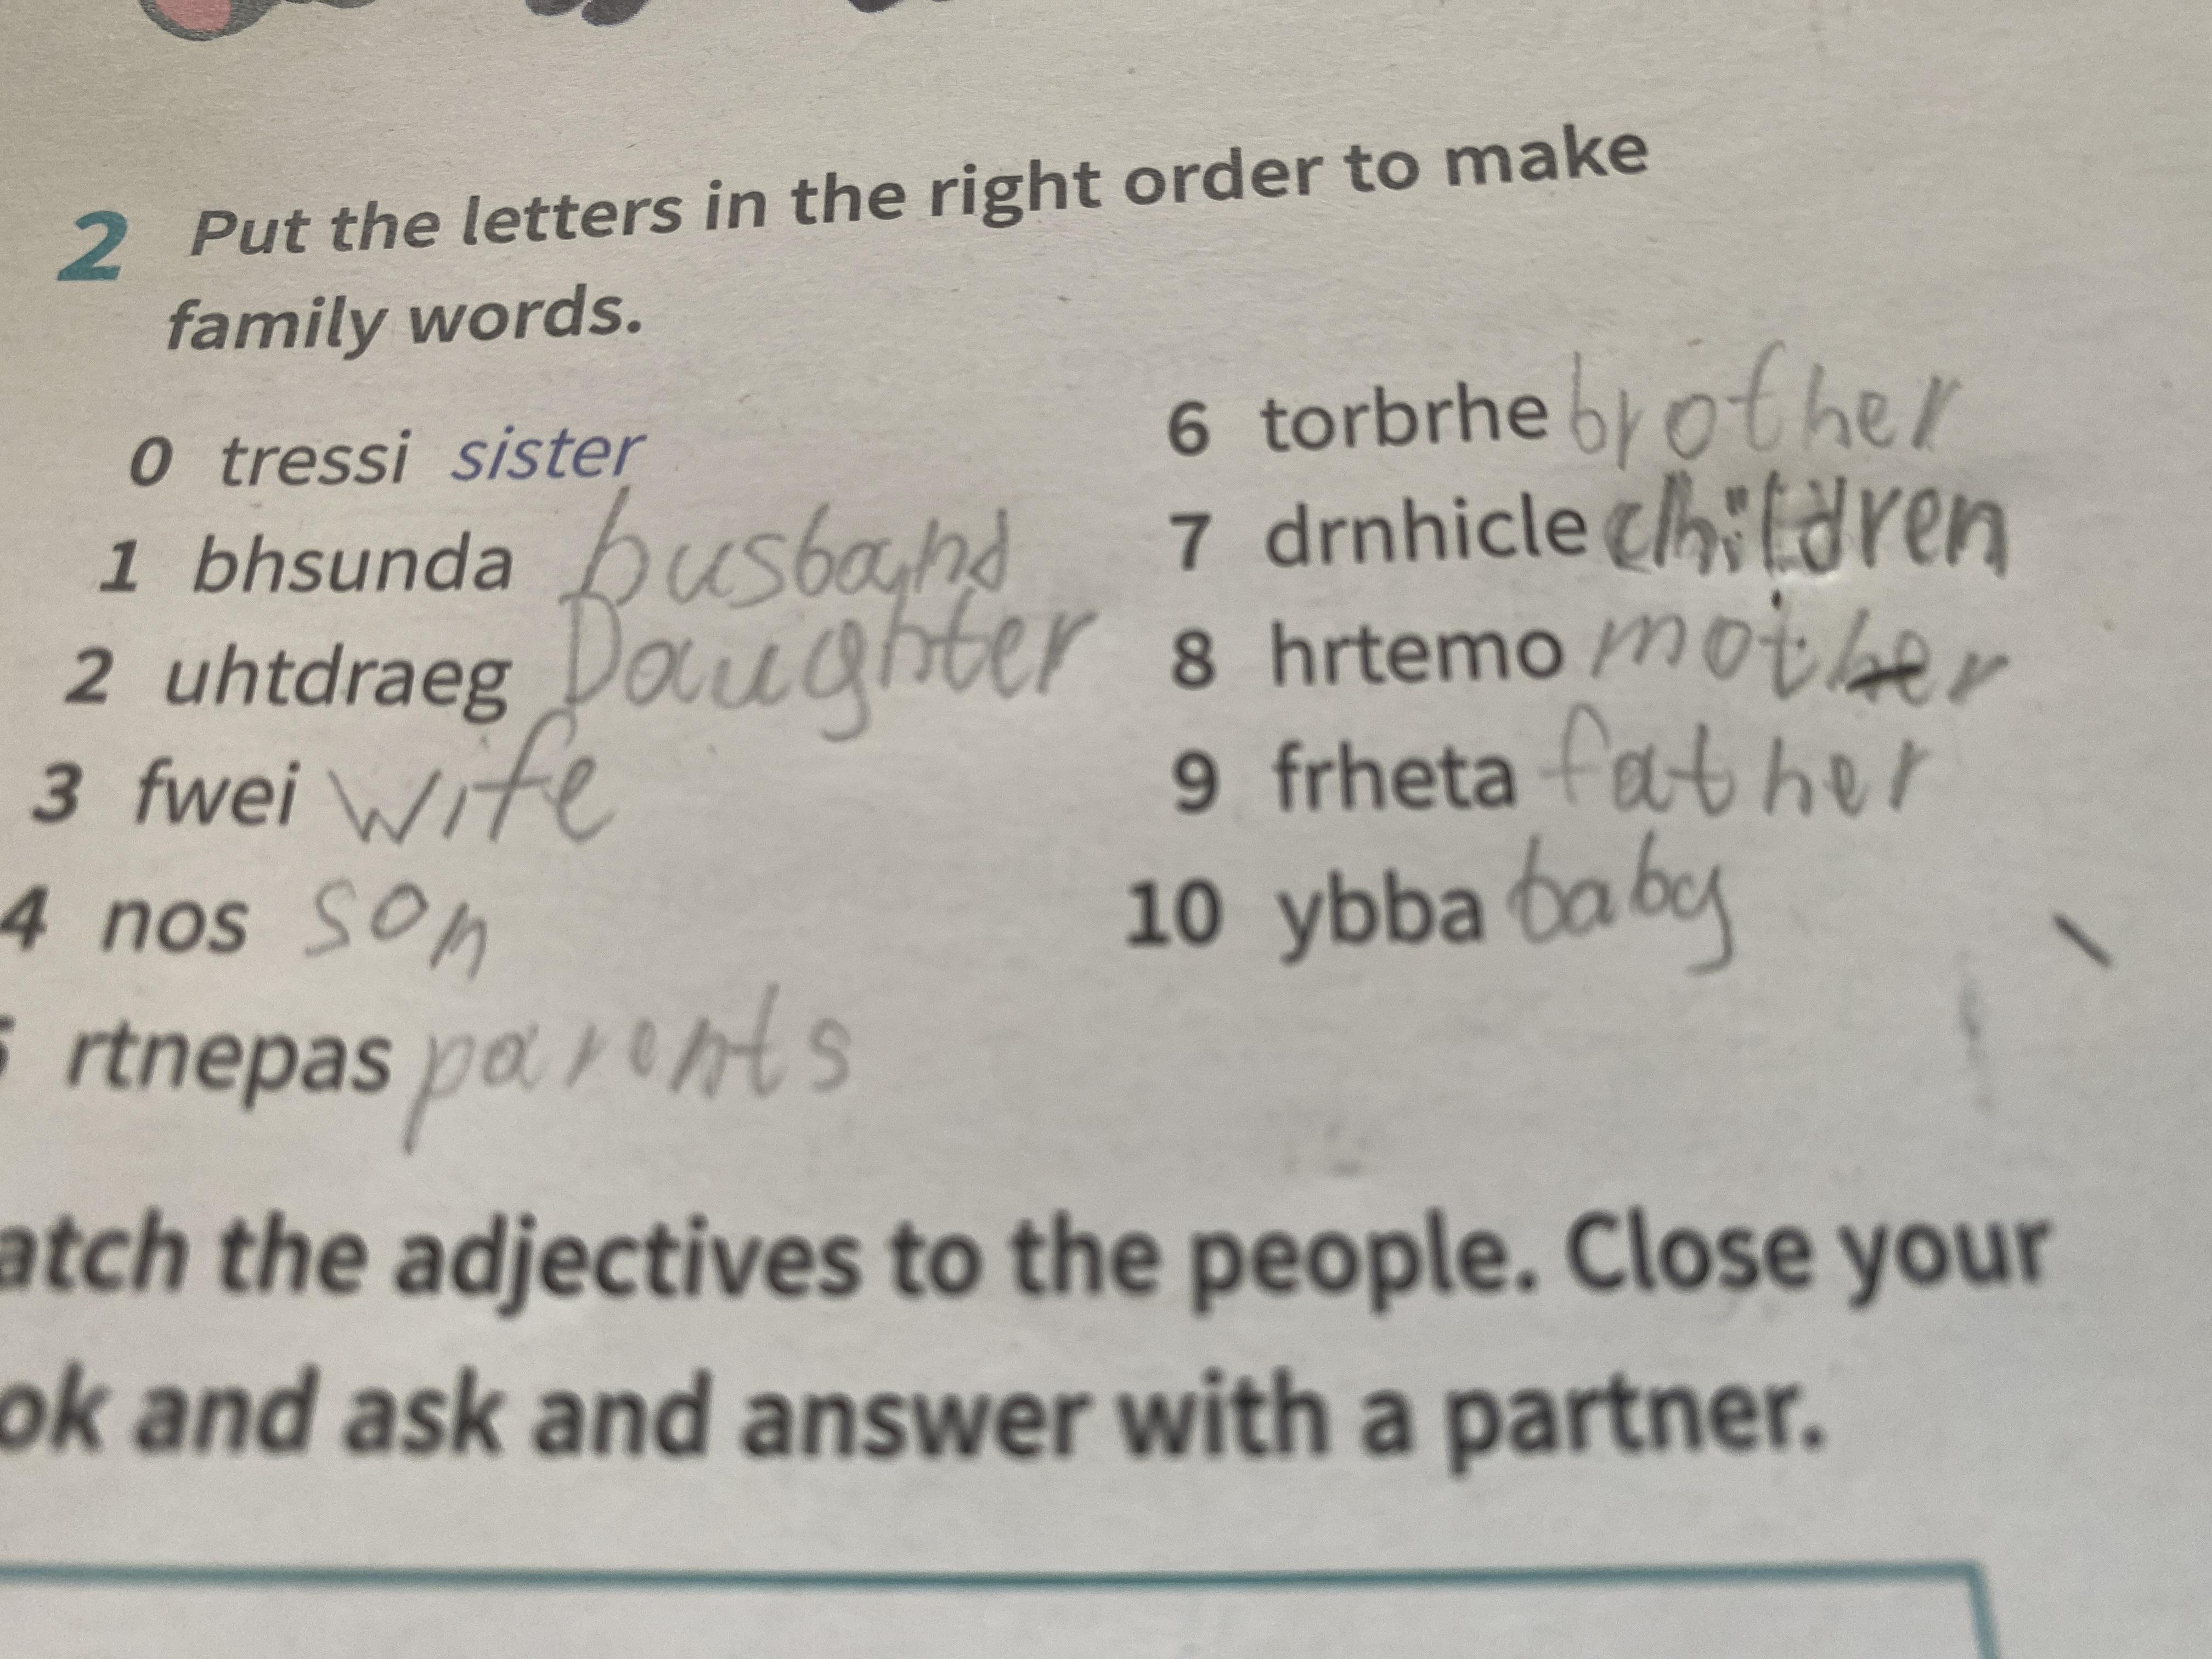 2 Put the letters in the right order to make
family words.
0 tressi sister
1 bhsunda husband
2 uhtdraeg Daughter
3 fwei wife
4 nos son
5 rtnepas parents
6 torbrhe brother
7 drnhicle children
8 hrtemo mother
9 frheta father
10 ybba baby
atch the adjectives to the people. Close your
ok and ask and answer with a partner.